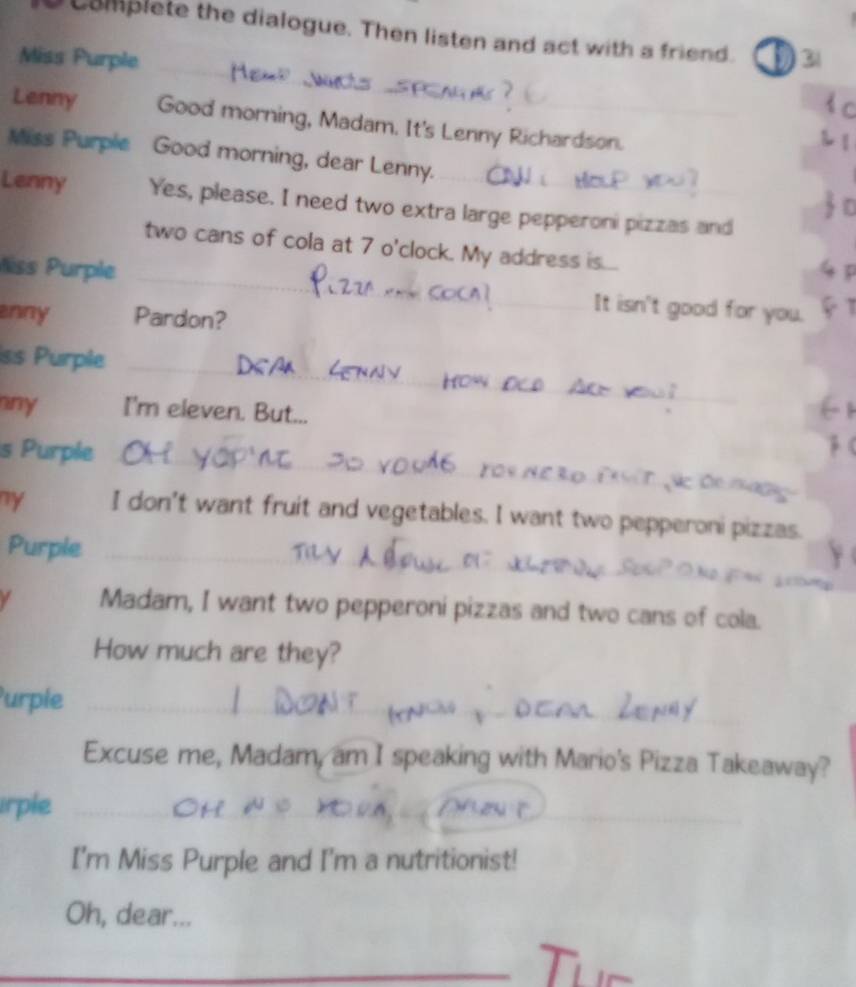 Complete the dialogue. Then listen and act with a friend. 31
Miss Purple SPEAKING?
Lenny Good morning, Madam. It's Lenny Richardson.
Miss Purple Good morning, dear Lenny. CAN I HELP YOU?
Lenny Yes, please. I need two extra large pepperoni pizzas and
two cans of cola at 7 o'clock. My address is...
Miss Purple PIZZA AND COCA! It isn't good for you.
enny Pardon?
ss Purple DEAR LENNY HOW OLD ARE YOU?
nny I'm eleven. But...
s Purple OH SO YOUNG
ny I don't want fruit and vegetables. I want two pepperoni pizzas.
Purple TRY A
y Madam, I want two pepperoni pizzas and two cans of cola.
How much are they?
Purple I DON'T KNOW, DEAR LENNY
Excuse me, Madam, am I speaking with Mario's Pizza Takeaway?
urple OH NO
I'm Miss Purple and I'm a nutritionist!
Oh, dear...